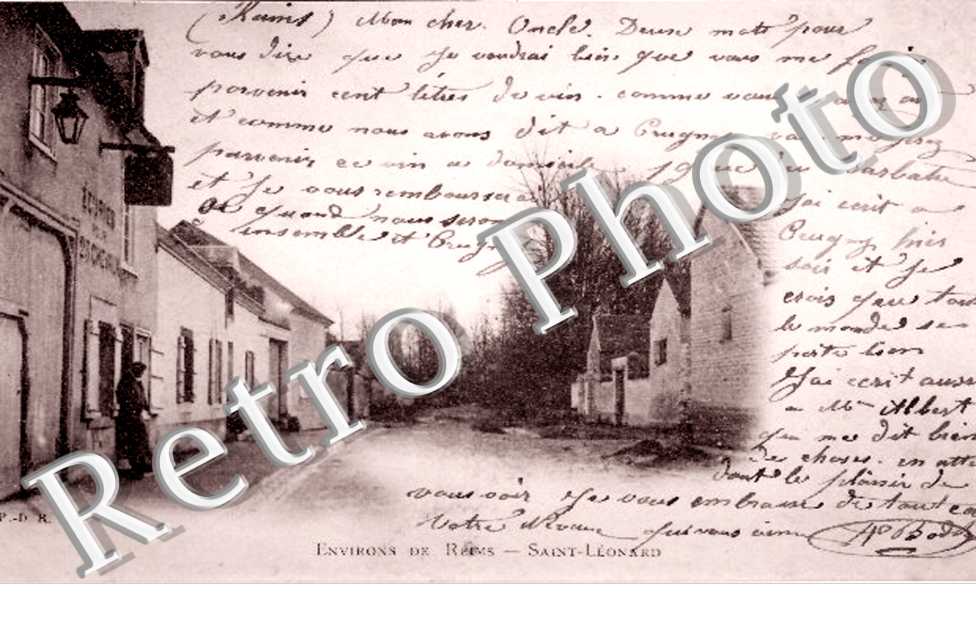 (Reims) Mon cher Oncle. Deux mots pour
vous dire que je voudrai bien que vous me
parvenir cent litres de vin. comme vous
et comme nous avons dit a Crugny
parvenir ce vin a domicile
et je vous rembourserai
quand nous serons
ensemble et Crugny
j'ai ecrit a
Crugny hier
soir et je
crois que tout
le monde se
porte bien
J'ai ecrit aussi
a Mr Albert
qui me dit bien
de choses. en att
dont le plaisir de
vous voir je vous embrasse de tout
Votre Neveu qui vous aime
ÉCURIE
P.-D. R.
ENVIRONS DE REIMS — SAINT-LÉONARD
Retro Photo